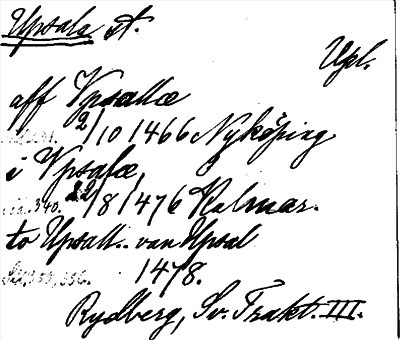 Upsala st.
Upl.
aff Vpsallæ
2/10 1466 Nyköping
i Vpsalæ,
340. 22/8 1476 Kalmar.
to Upsall.. van Upsal
1478.
Rydberg, Sv. Trakt. III.